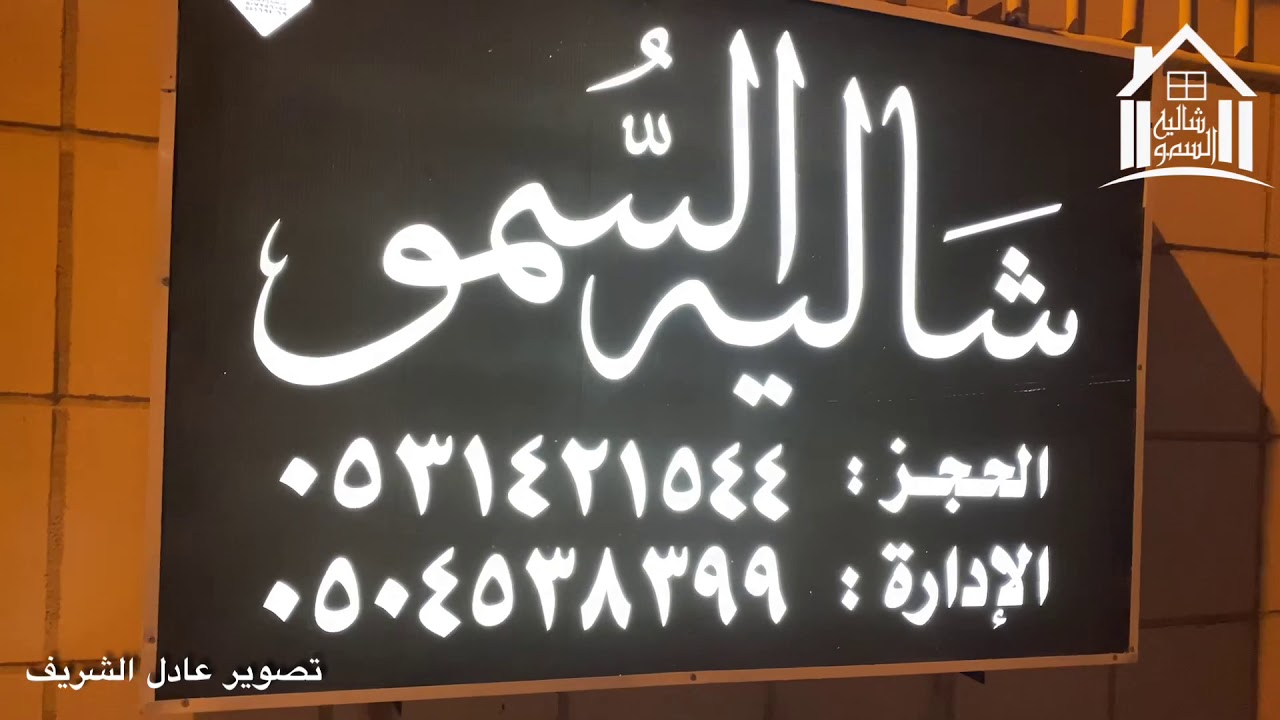 شَاليه السُّمو
الحجز : ٠٥٣١٤٢١٥٤٤
الإدارة : ٠٥٠٤٥٣٨٣٩٩
شاليه
السمو
تصوير عادل الشريف